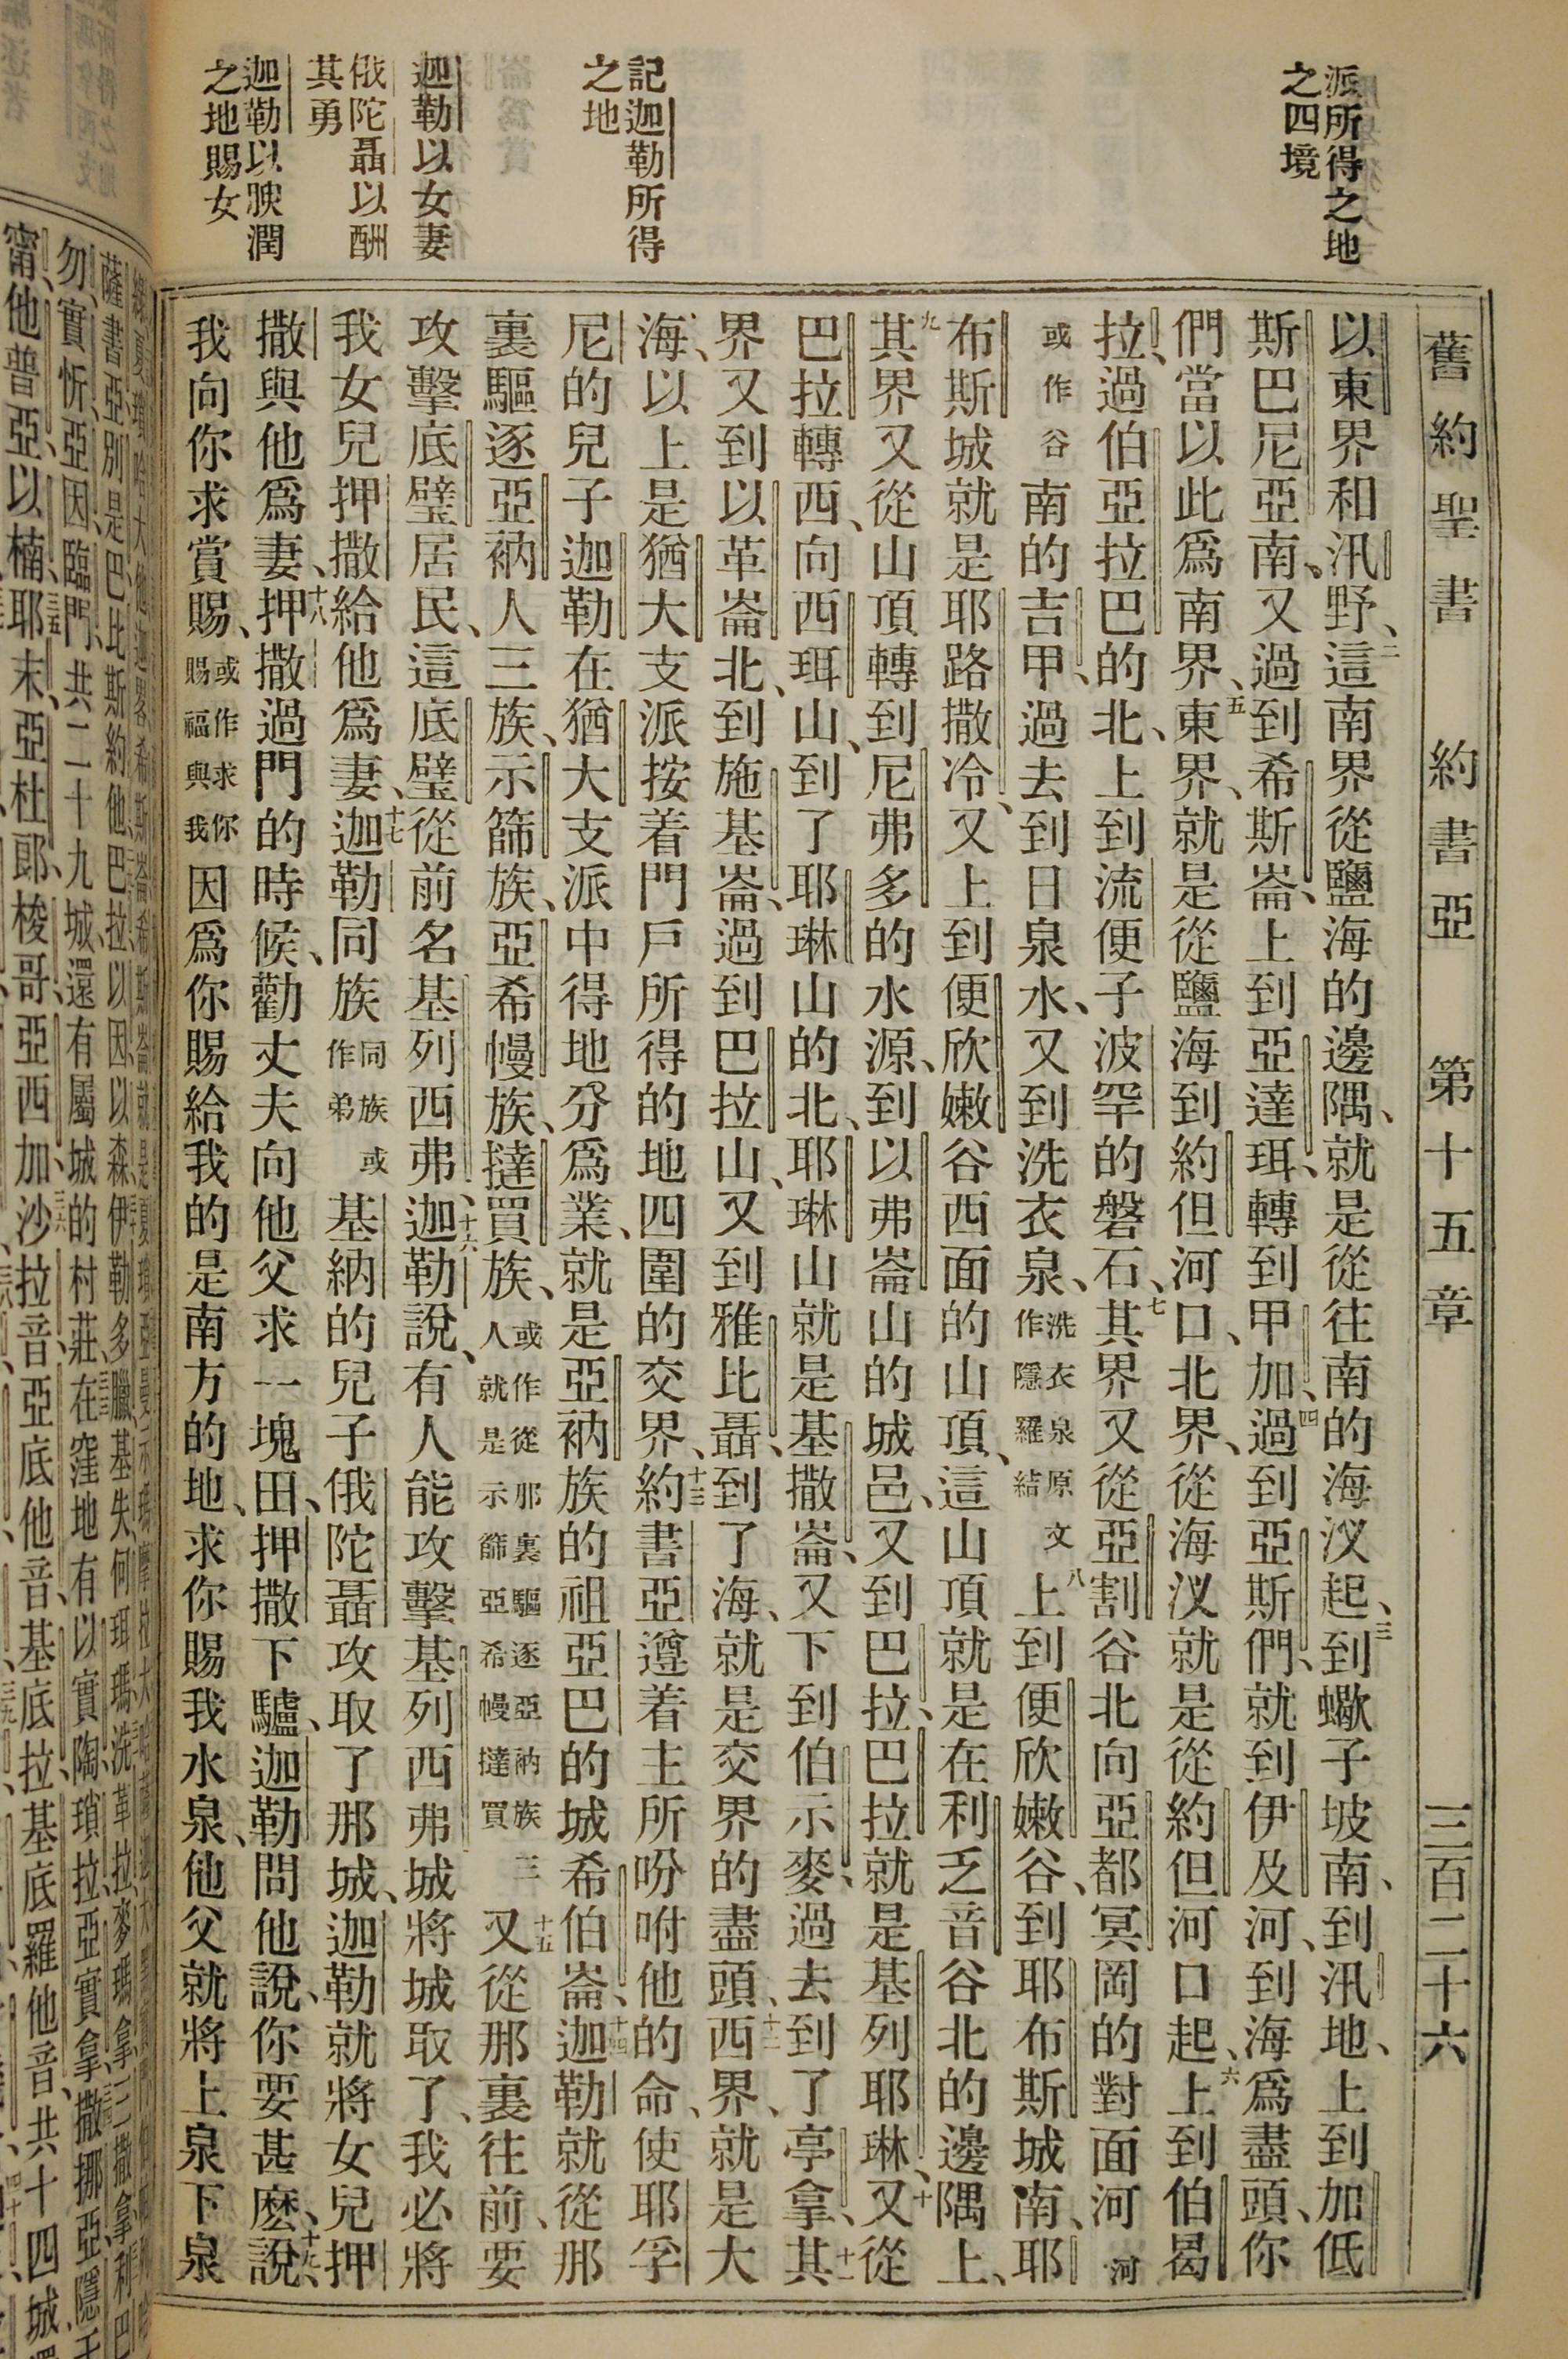 舊約聖書 約書亞 第十五章 三百二十六
派所得之地
之四境
記迦勒所得
之地
迦勒以女妻
俄陀聶以酬
其勇
迦勒以腴潤
之地賜女
以東界和汛野、二這南界從鹽海的邊隅、就是從往南的海汊起、三到蠍子坡南、到汛地、上到加低
斯巴尼亞南、又過到希斯崙、上到亞達珥、轉到甲加、四過到亞斯們、就到伊及河、到海爲盡頭、你
們當以此爲南界、五東界、就是從鹽海到約但河口、北界、從海汊就是從約但河口起、六上到伯曷
拉、過伯亞拉巴的北、上到流便子波罕的磐石、七其界又從亞割谷北向亞都冥岡的對面河 河
或作谷 南的吉甲、過去到日泉水、又到洗衣泉、洗衣泉原文作隱羅結 八上到便欣嫩谷、到耶布斯城南、耶
布斯城就是耶路撒冷、又上到便欣嫩谷西面的山頂、這山頂就是在利乏音谷北的邊隅上、
九其界又從山頂轉到尼弗多的水源、到以弗崙山的城邑、又到巴拉、巴拉就是基列耶琳、十又從
巴拉轉西、向西珥山、到了耶琳山的北、耶琳山就是基撒崙、又下到伯示麥、過去到了亭拿、十一其
界又到以革崙北、到施基崙、過到巴拉山、又到雅比聶、到了海、就是交界的盡頭、十二西界、就是大
海、以上是猶大支派按着門戶所得的地四圍的交界、十三約書亞遵着主所吩咐他的命、使耶孚
尼的兒子迦勒在猶大支派中得地分爲業、就是亞衲族的祖亞巴的城希伯崙、十四迦勒就從那
裏驅逐亞衲人三族、示篩族、亞希幔族、撻買族、或作從那裏驅逐亞衲族三人就是示篩亞希幔撻買 十五又從那裏往前、要
攻擊底璧居民、這底璧從前名基列西弗、十六迦勒說、有人能攻擊基列西弗城將城取了、我必將
我女兒押撒給他爲妻、十七迦勒同族 同族或作弟 基納的兒子俄陀聶攻取了那城、迦勒就將女兒押
撒與他爲妻、十八押撒過門的時候、勸丈夫向他父求一塊田、押撒下驢、迦勒問他說、你要甚麽、十九說、
我向你求賞賜、或作求你賜福與我 因爲你賜給我的是南方的地、求你賜我水泉、他父就將上泉下泉